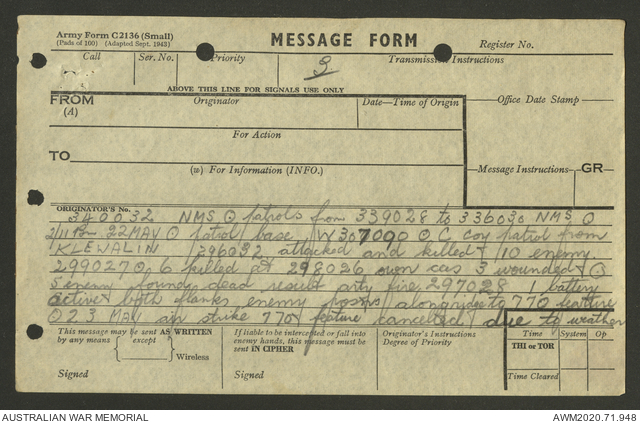 Army Form C2136 (Small)
(Pads of 100) (Adapted Sept. 1943)
MESSAGE FORM
Register No.
Call
Ser. No.
Priority
3
Transmission Instructions
ABOVE THIS LINE FOR SIGNALS USE ONLY
FROM
(A)
Originator
Date—Time of Origin
Office Date Stamp
For Action
TO
(w) For Information (INFO.)
Message Instructions
GR
ORIGINATOR'S No.
340032 NMS O patrols from 339028 to 336030 NMS O
2/11 Bn 22 MAY O patrol base O C coy patrol from
KLEWALIN 296032 attacked and killed 10 enemy
299027 O 6 killed at 298026 own cas 3 wounded O
5 enemy found dead result arty fire 297028 1 battery
active both flanks enemy posns along ridge to 770 feature
O 23 MAY air strike 770 feature cancelled due to weather
This message may be sent AS WRITTEN
by any means except
Wireless
Signed
If liable to be intercepted or fall into
enemy hands, this message must be
sent IN CIPHER
Signed
Originator's Instructions
Degree of Priority
Time
System
Op
THI or TOR
Time Cleared
AUSTRALIAN WAR MEMORIAL
AWM2020.71.948